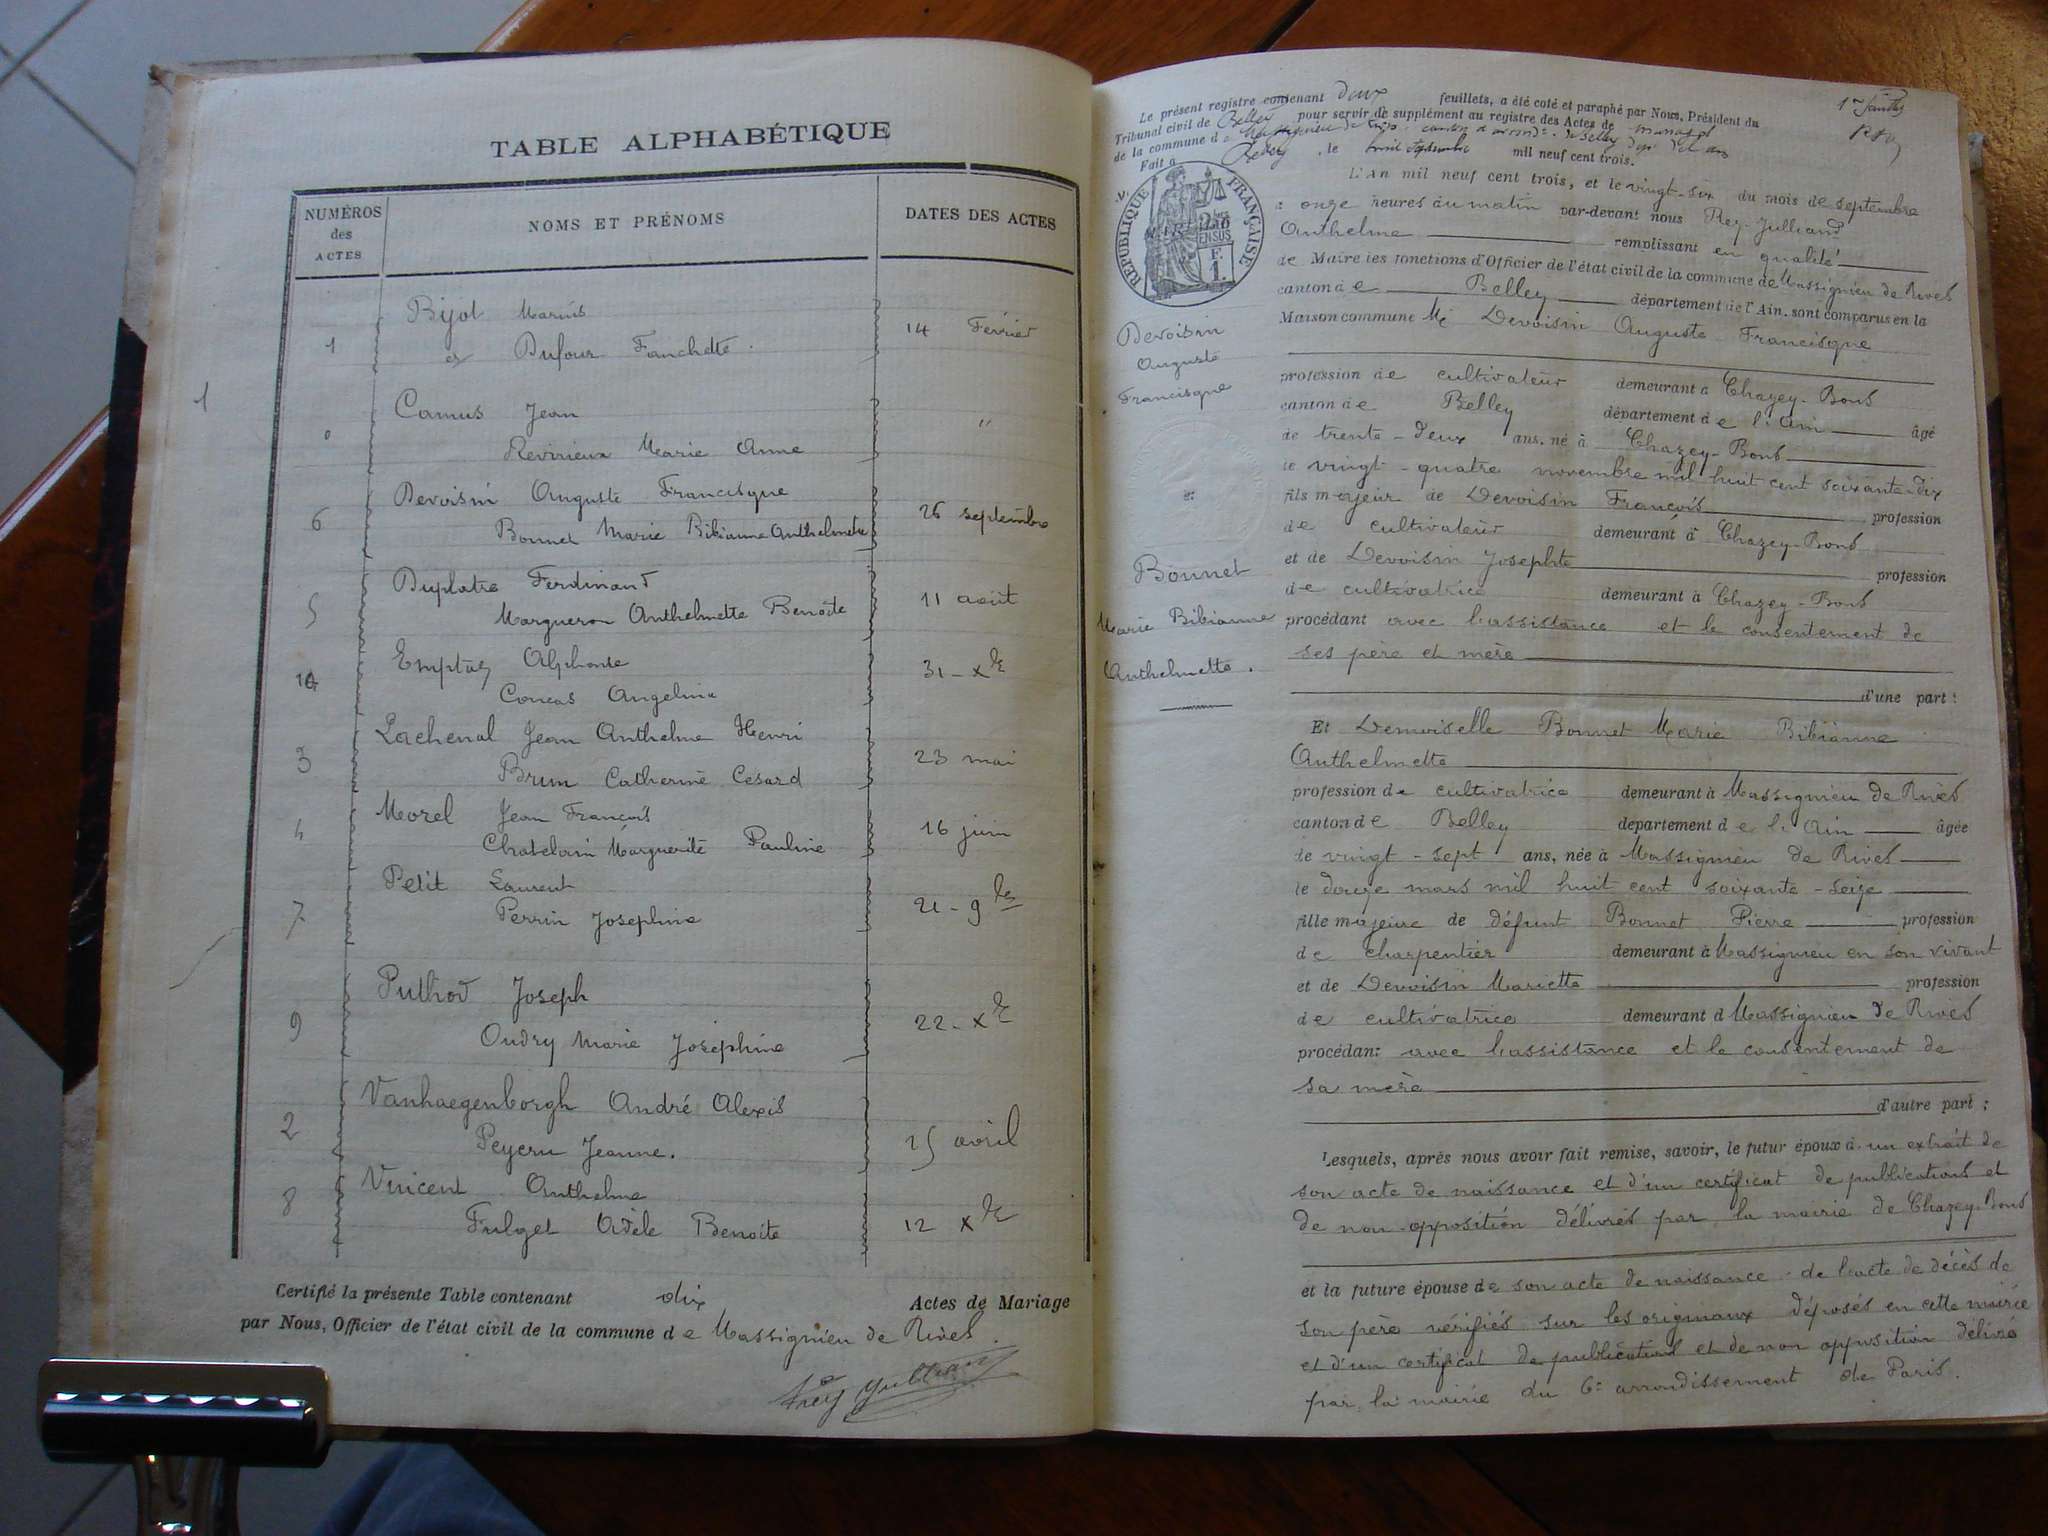 TABLE ALPHABÉTIQUE
NUMÉROS des ACTES
NOMS ET PRÉNOMS
DATES DES ACTES
1
Bijot Marius
et Dufour Fanchette.
14 Février
Camus Jean
Revirieux Marie Anne
"
6
Devoisin Auguste Francisque
Bonnet Marie Bibianne Anthelmette
26 septembre
5
Duplatre Ferdinand
Margueron Anthelmette Benoîte
11 août
10
Emptaz Alphonse
Concas Angelina
31 - Xbre
3
Lachenal Jean Anthelme Henri
Brun Catherine Césard
23 mai
4
Morel Jean François
Chatelain Marguerite Pauline
16 juin
7
Petit Laurent
Perrin Josephine
21 - 9bre
9
Puthod Joseph
Oudry Marie Josephine
22 - Xbre
2
Vanhaegenborgh André Alexis
Peycru Jeanne.
25 avril
8
Vincent Anthelme
Fulget Adèle Benoite
12 Xbre
1
Certifié la présente Table contenant dix Actes de Mariage
par Nous, Officier de l'état civil de la commune de Massignieu de Rives.
Rey Julliand
Le présent registre contenant deux feuillets, a été coté et paraphé par Nous, Président du
Tribunal civil de Belley pour servir de supplément au registre des Actes de mariages
de la commune de Massignieu de Rives
Fait à Belley, le septembre mil neuf cent trois.
RÉPUBLIQUE FRANÇAISE
F. 1.
L'An mil neuf cent trois, et le vingt-six du mois de septembre
à onze heures du matin par-devant nous Rey-Julliand
Anthelme remplissant en qualité
de Maire les fonctions d'Officier de l'état civil de la commune de Massignieu de Rives
canton de Belley département de l'Ain. sont comparus en la
Maison commune Mr Devoisin Auguste Francisque
profession de cultivateur demeurant à Chazey-Bons
canton de Belley département de l'Ain âgé
de trente-deux ans. né à Chazey-Bons
le vingt-quatre novembre mil huit cent soixante-dix
fils majeur de Devoisin François profession
de cultivateur demeurant à Chazey-Bons
et de Devoisin Josephte profession
de cultivatrice demeurant à Chazey-Bons
procédant avec l'assistance et le consentement de
ses père et mère
d'une part :
Devoisin
Auguste
Francisque
et
Bonnet
Marie Bibianne
Anthelmette.
Et Demoiselle Bonnet Marie Bibianne
Anthelmette
profession de cultivatrice demeurant à Massignieu de Rives
canton de Belley département de l'Ain âgée
de vingt-sept ans, née à Massignieu de Rives
le douze mars mil huit cent soixante-seize
fille majeure de défunt Bonnet Pierre profession
de charpentier demeurant à Massignieu en son vivant
et de Devoisin Mariette profession
de cultivatrice demeurant à Massignieu de Rives
procédant avec l'assistance et le consentement de
sa mère
d'autre part ;
Lesquels, après nous avoir fait remise, savoir, le futur époux à un extrait de
son acte de naissance et d'un certificat de publications et
de non opposition délivrés par la mairie de Chazey-Bons
et la future épouse de son acte de naissance de l'acte de décès de
son père vérifiés sur les originaux déposés en cette mairie
et d'un certificat de publications et de non opposition délivré
par la mairie du 6e arrondissement de Paris.